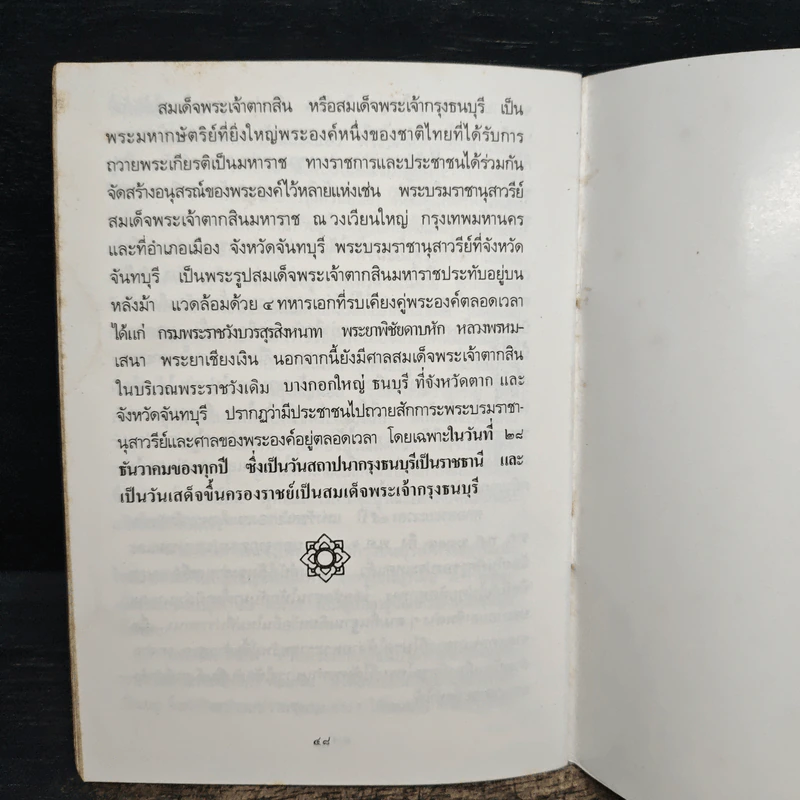 สมเด็จพระเจ้าตากสิน หรือสมเด็จพระเจ้ากรุงธนบุรี เป็น
พระมหากษัตริย์ที่ยิ่งใหญ่พระองค์หนึ่งของชาติไทยที่ได้รับการ
ถวายพระเกียรติเป็นมหาราช ทางราชการและประชาชนได้ร่วมกัน
จัดสร้างอนุสรณ์ของพระองค์ไว้หลายแห่งเช่น พระบรมราชานุสาวรีย์
สมเด็จพระเจ้าตากสินมหาราช ณ วงเวียนใหญ่ กรุงเทพมหานคร
และที่อำเภอเมือง จังหวัดจันทบุรี พระบรมราชานุสาวรีย์ที่จังหวัด
จันทบุรี เป็นพระรูปสมเด็จพระเจ้าตากสินมหาราชประทับอยู่บน
หลังม้า แวดล้อมด้วย ๔ ทหารเอกที่รบเคียงคู่พระองค์ตลอดเวลา
ได้แก่ กรมพระราชวังบวรสุรสิงหนาท พระยาพิชัยดาบหัก หลวงพรหม-
เสนา พระยาเชียงเงิน นอกจากนี้ยังมีศาลสมเด็จพระเจ้าตากสิน
ในบริเวณพระราชวังเดิม บางกอกใหญ่ ธนบุรี ที่จังหวัดตาก และ
จังหวัดจันทบุรี ปรากฏว่ามีประชาชนไปถวายสักการะพระบรมราชา-
นุสาวรีย์และศาลของพระองค์อยู่ตลอดเวลา โดยเฉพาะในวันที่ ๒๘
ธันวาคมของทุกปี ซึ่งเป็นวันสถาปนากรุงธนบุรีเป็นราชธานี และ
เป็นวันเสด็จขึ้นครองราชย์เป็นสมเด็จพระเจ้ากรุงธนบุรี
๔๘